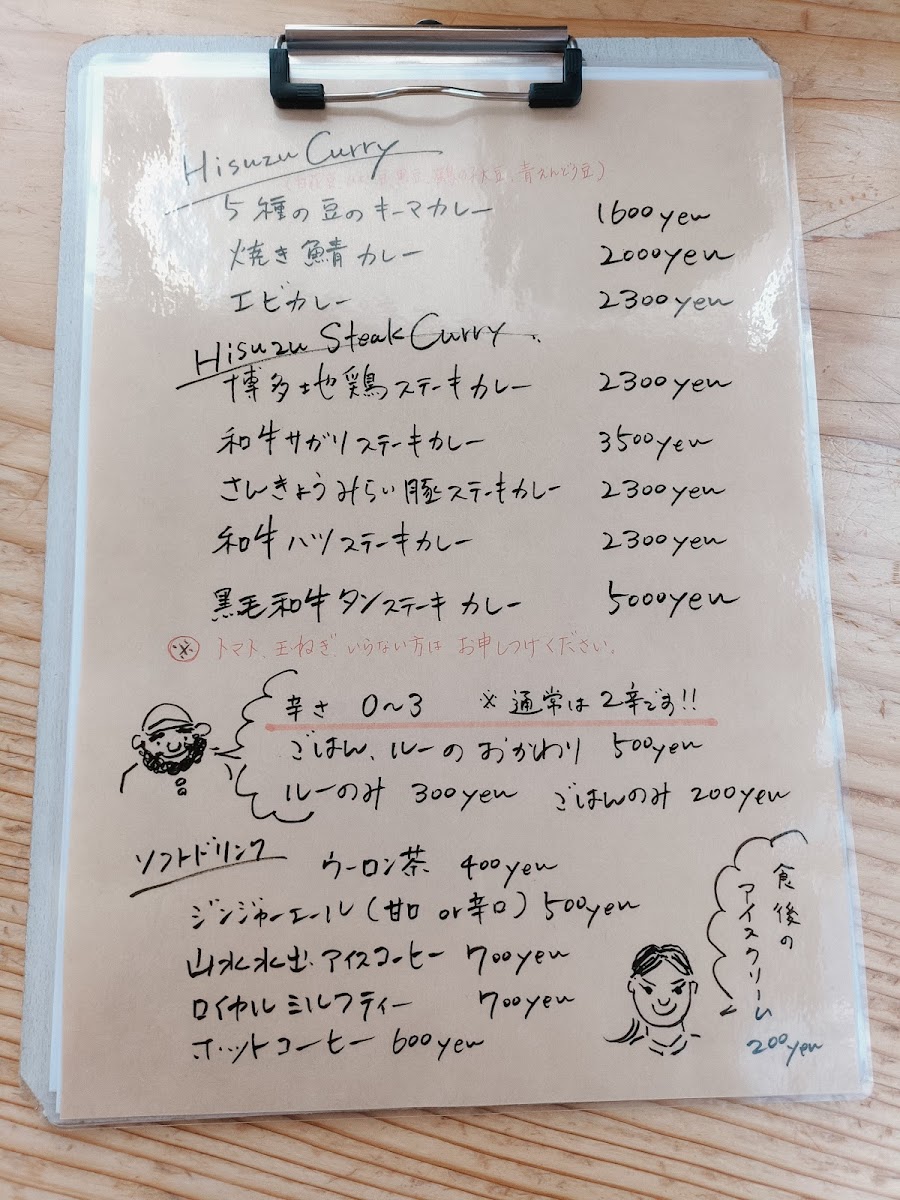 Hisuzu Curry
大豆、青えんどう豆)
5種の豆のキーマカレー 1600yen
焼き鯖カレー 2000yen
エビカレー 2300yen
Hisuzu Steak Curry
博多地鶏ステーキカレー 2300yen
和牛サガリステーキカレー 3500yen
さんきょうみらい豚ステーキカレー 2300yen
和牛ハツステーキカレー 2300yen
黒毛和牛タンステーキカレー 5000yen
※ トマト、玉ねぎ、いらない方は お申しつけください。
辛さ 0〜3 ※通常は2辛です!!
ごはん、ルーの おかわり 500yen
ルーのみ 300yen ごはんのみ 200yen
ソフトドリンク
ウーロン茶 400yen
ジンジャーエール(甘口 or 辛口) 500yen
山水水出アイスコーヒー 700yen
ロイヤルミルクティー 700yen
ホットコーヒー 600yen
食後の
アイスクリーム
200yen